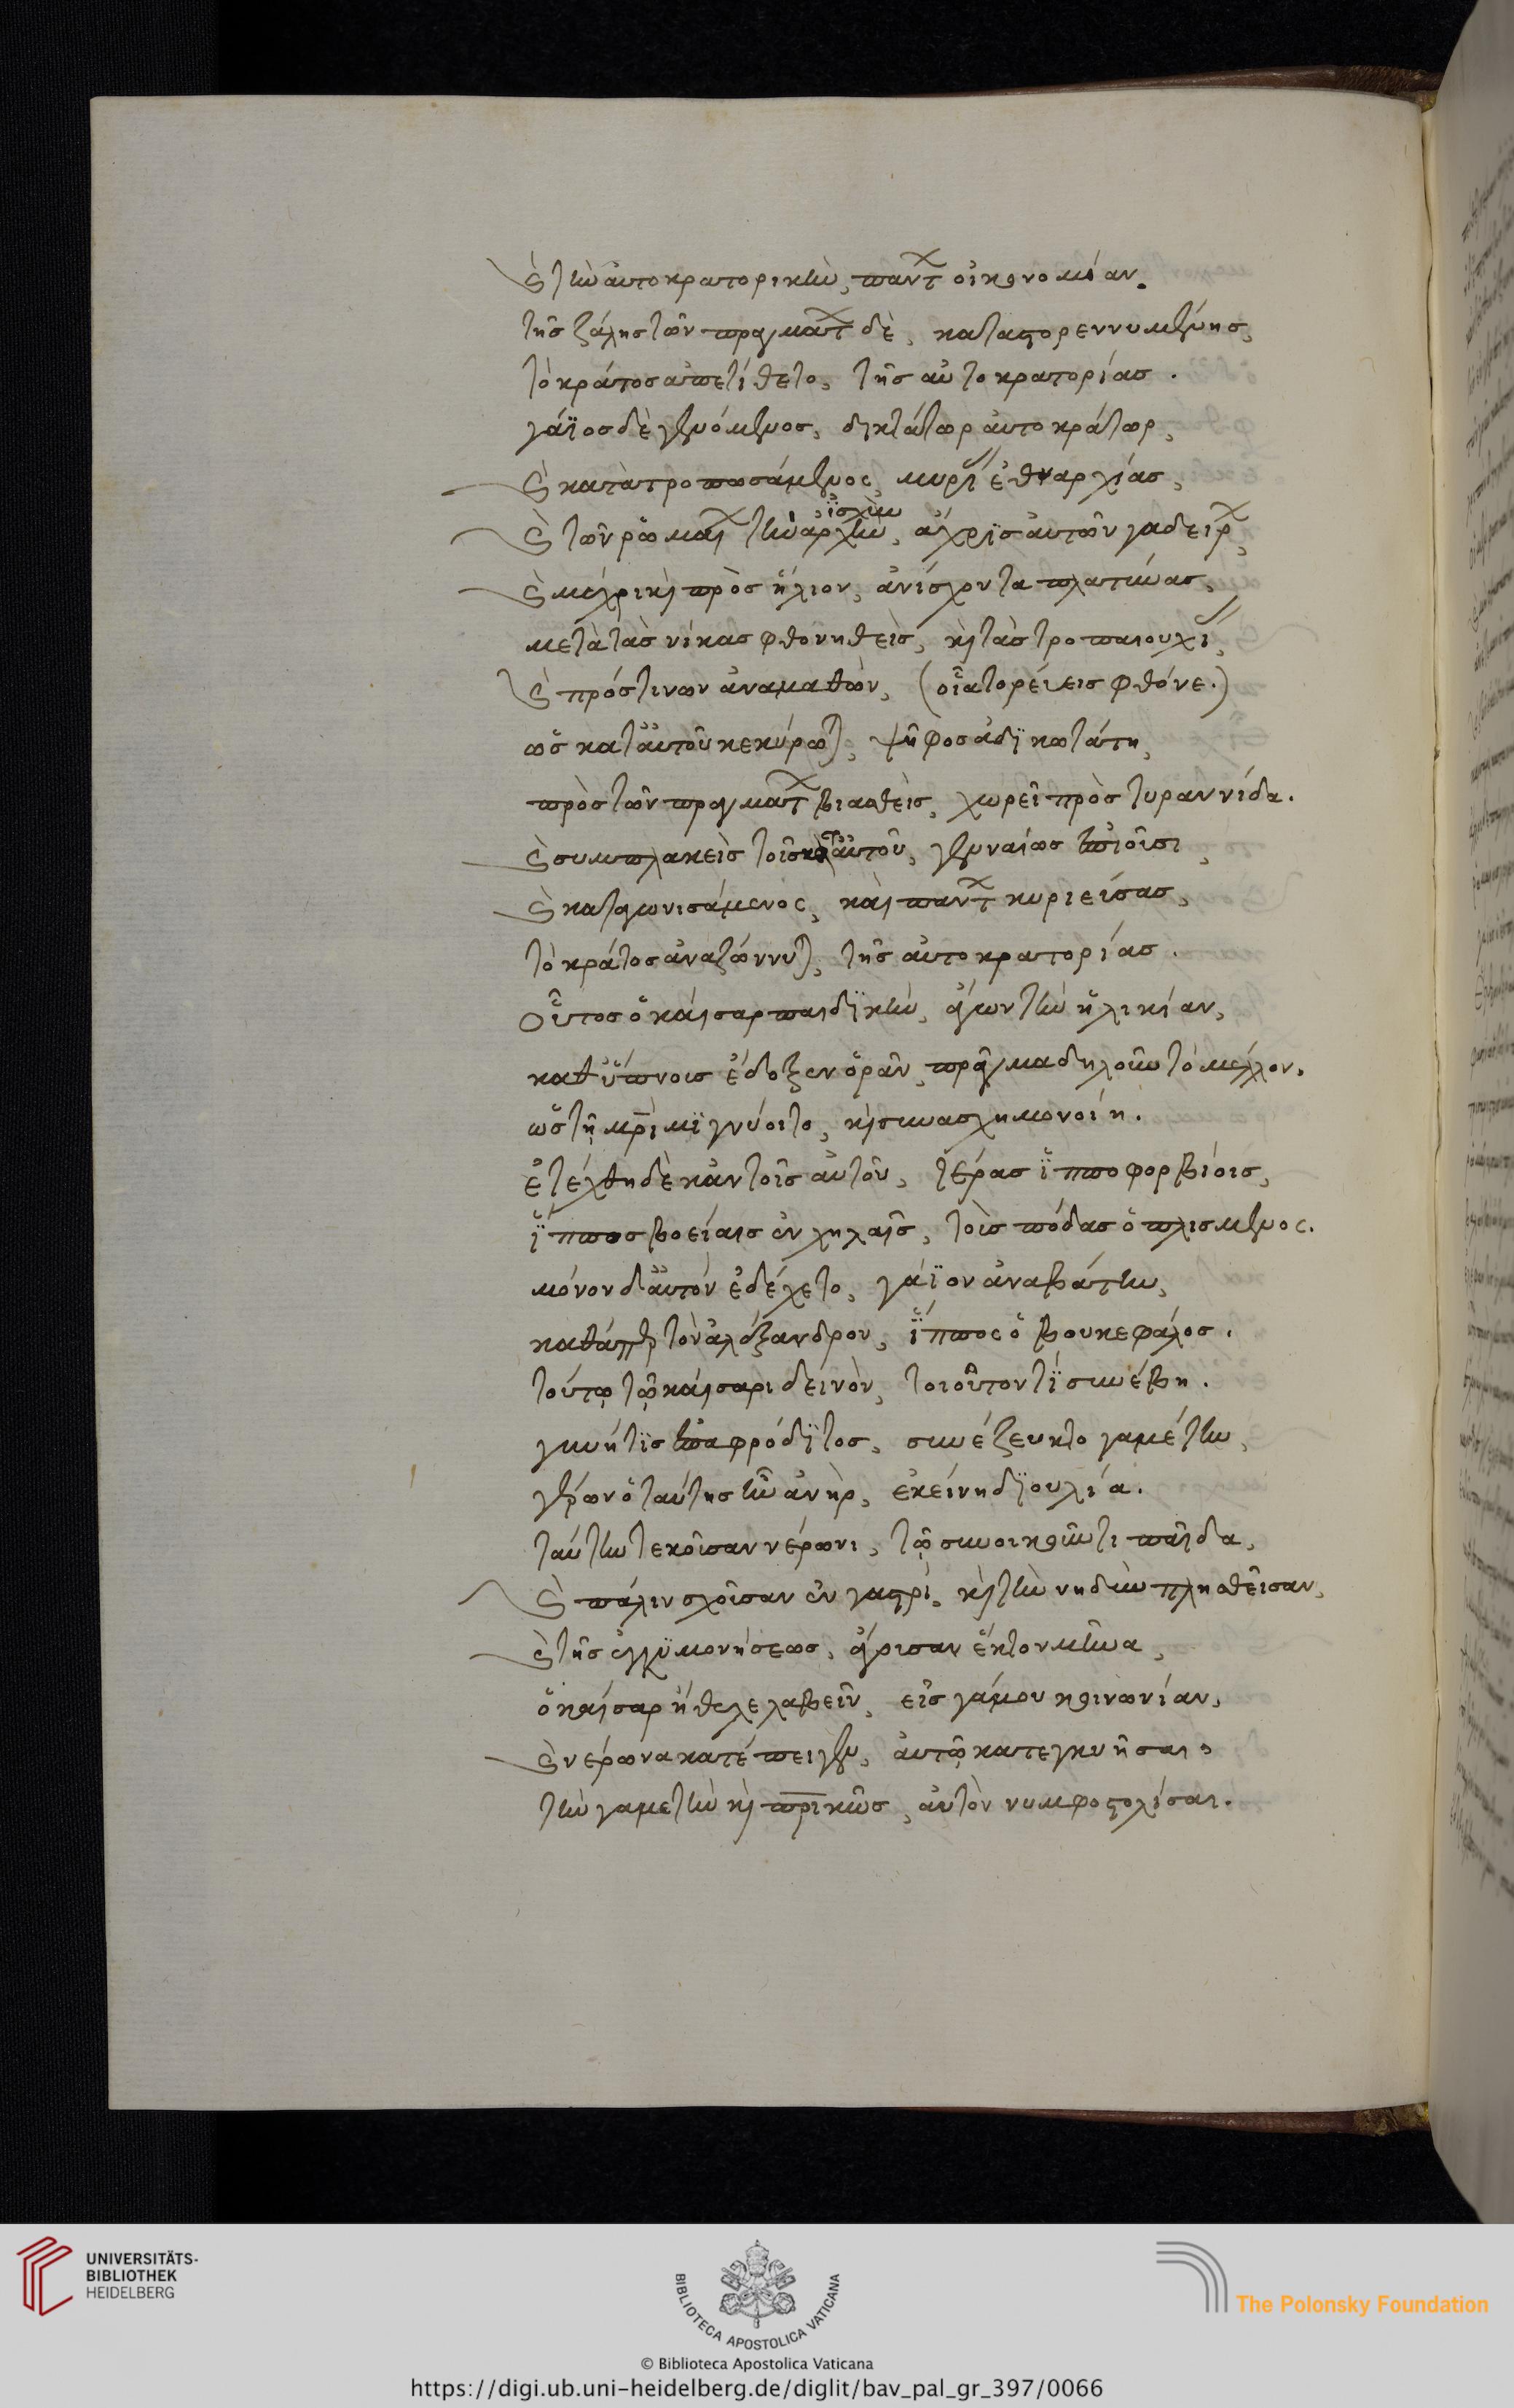 καὶ τὴν αὐτοκρατορικὴν, πάντων οἰκονομίαν.
τῆς ζάλης τῶν πραγμάτων δὲ, καταστορεννυμένης,
τὸ κράτος ἀπετίθετο, τῆς αὐτοκρατορίας.
γάϊος δὲ γενόμενος, δικτάτωρ αὐτοκράτωρ,
καὶ κατατροπωσάμενος, μυρίας ἐθναρχίας,
καὶ τῶν ῥωμαίων τὴν ἀρχὴν, ἄχρις αὐτῶν γαδείρων,
ἰσχὺν
καὶ μέχρι καὶ πρὸς ἥλιον, ἀνίσχοντα πλατύνας,
μετὰ τὰς νίκας φθονηθεὶς, καὶ τὰς τροπαιουχίας,
καὶ πρός τινων ἀναμαθὼν, (οἷα τορεύεις φθόνε.)
ὡς κατ' αὐτοῦ κεκύρωται, ψῆφος ἀδικωτάτη,
πρὸς τῶν πραγμάτων βιασθεὶς, χωρεῖ πρὸς τυραννίδα.
καὶ συμπλακεὶς τοῖς κατ' αὐτοῦ, γενναίως ἐπιοῦσι,
καὶ καταγωνισάμενος, καὶ πάντων κυριεύσας,
τὸ κράτος ἀναζώννυται, τῆς αὐτοκρατορίας.
Οὗτος ὁ καῖσαρ παιδικὴν, ἄγων τὴν ἡλικίαν,
καθ' ὕπνους ἔδοξεν ὁρᾶν, πρᾶγμα δηλοῦν τὸ μέλλον.
ὡς τῇ μητρὶ μιγνύοιτο, καὶ συνασχημονοίη.
ἐτέχθη δὲ κἀν τοῖς αὐτοῦ, τέρας ἱπποφορβίοις,
ἵππος βοείαις ἐν χηλαῖς, τοὺς πόδας ὁπλισμένος.
μόνον δ' αὐτὸν ἐδέχετο, γάϊον ἀναβάτην,
καθάπερ τὸν ἀλέξανδρον, ἵππος ὁ βουκεφάλος.
τούτῳ τῷ καίσαρι δεινὸν, τοιοῦτόν τι συνέβη.
γυνή τις ἐπαφρόδιτος, συνέζευκτο γαμέτην,
νέρων ὁ ταύτης ἦν ἀνὴρ, ἐκείνη δ' ἰουλία.
ταύτην τεκοῦσαν νέρωνι, τῷ συνοικοῦντι παῖδα,
καὶ πάλιν σχοῦσαν ἐν γαστρὶ, καὶ τὴν νηδὺν πλησθεῖσαν,
καὶ τῆς ἐγκυμονήσεως, ἄγουσαν ἕκτον μῆνα,
ὁ καῖσαρ ἤθελε λαβεῖν, εἰς γάμου κοινωνίαν,
καὶ νέρωνα κατέπειγεν, αὐτῷ κατεγγυῆσαι,
τὴν γαμετὴν καὶ πατρικῶς, αὐτὸν νυμφοστολῆσαι.
UNIVERSITÄTS-
BIBLIOTHEK
HEIDELBERG
BIBLIOTECA APOSTOLICA VATICANA
The Polonsky Foundation
© Biblioteca Apostolica Vaticana
https://digi.ub.uni-heidelberg.de/diglit/bav_pal_gr_397/0066